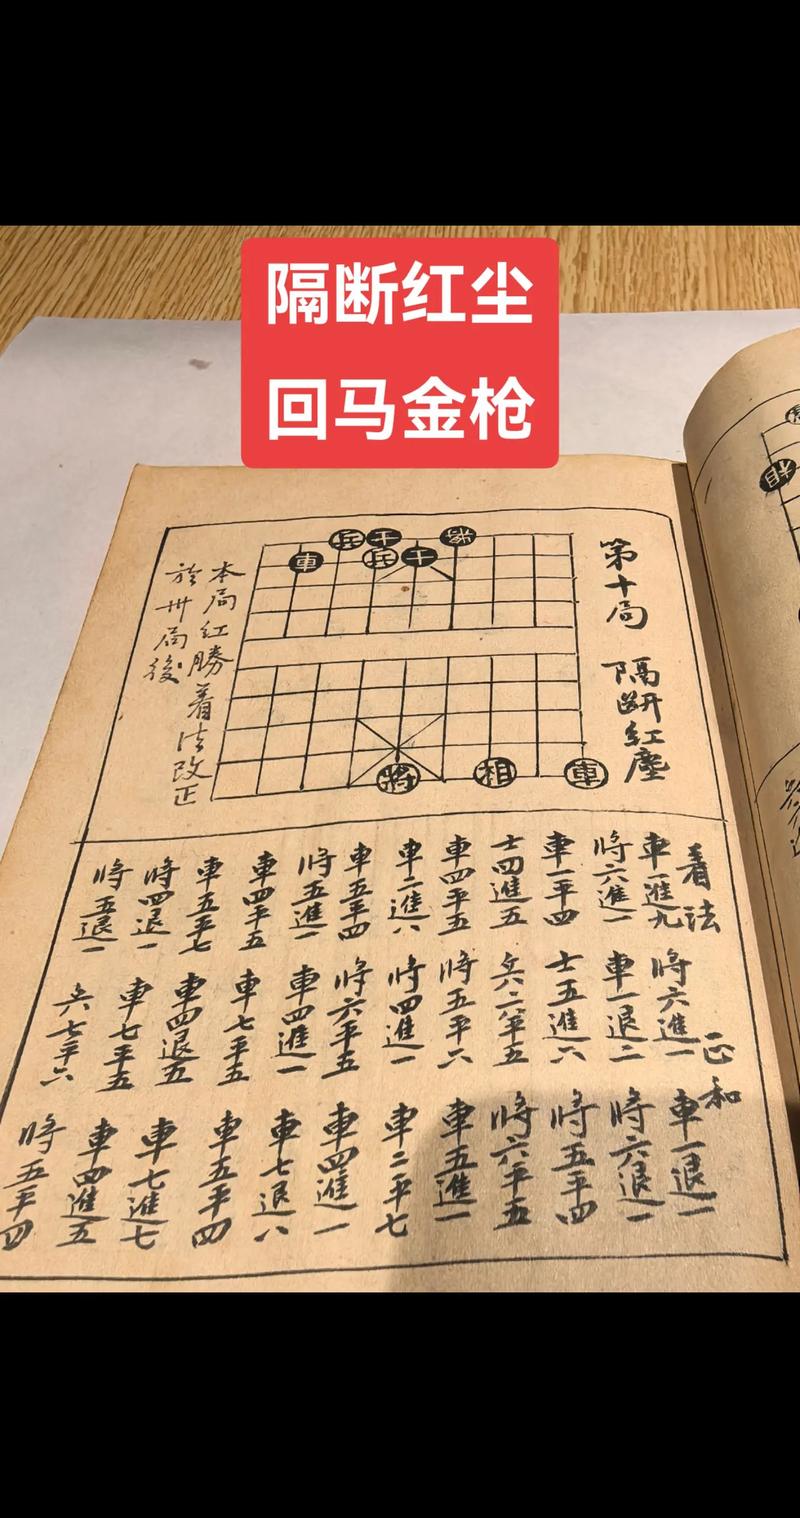 隔断红尘
回马金枪
第十局　隔断紅塵
兵
士
將
車
兵
士
將
相
車
本局紅勝着法改正
於卅局後
相
着法　正和
車一進九
將六進一
車一退一
將六進一
車一退二
將六退一
車一平四
士五進六
將五平四
士四進五
兵六平五
將六平五
車四平五
將五平六
車五進一
車二進八
將四進一
車二平七
車五平四
將六平五
車四進一
將五進一
車四進一
車七退八
車四平五
車七平五
車五平四
車五平七
車四退五
車七進七
將四退一
車七平五
車四進五
將五退一
兵七平六
將五平四